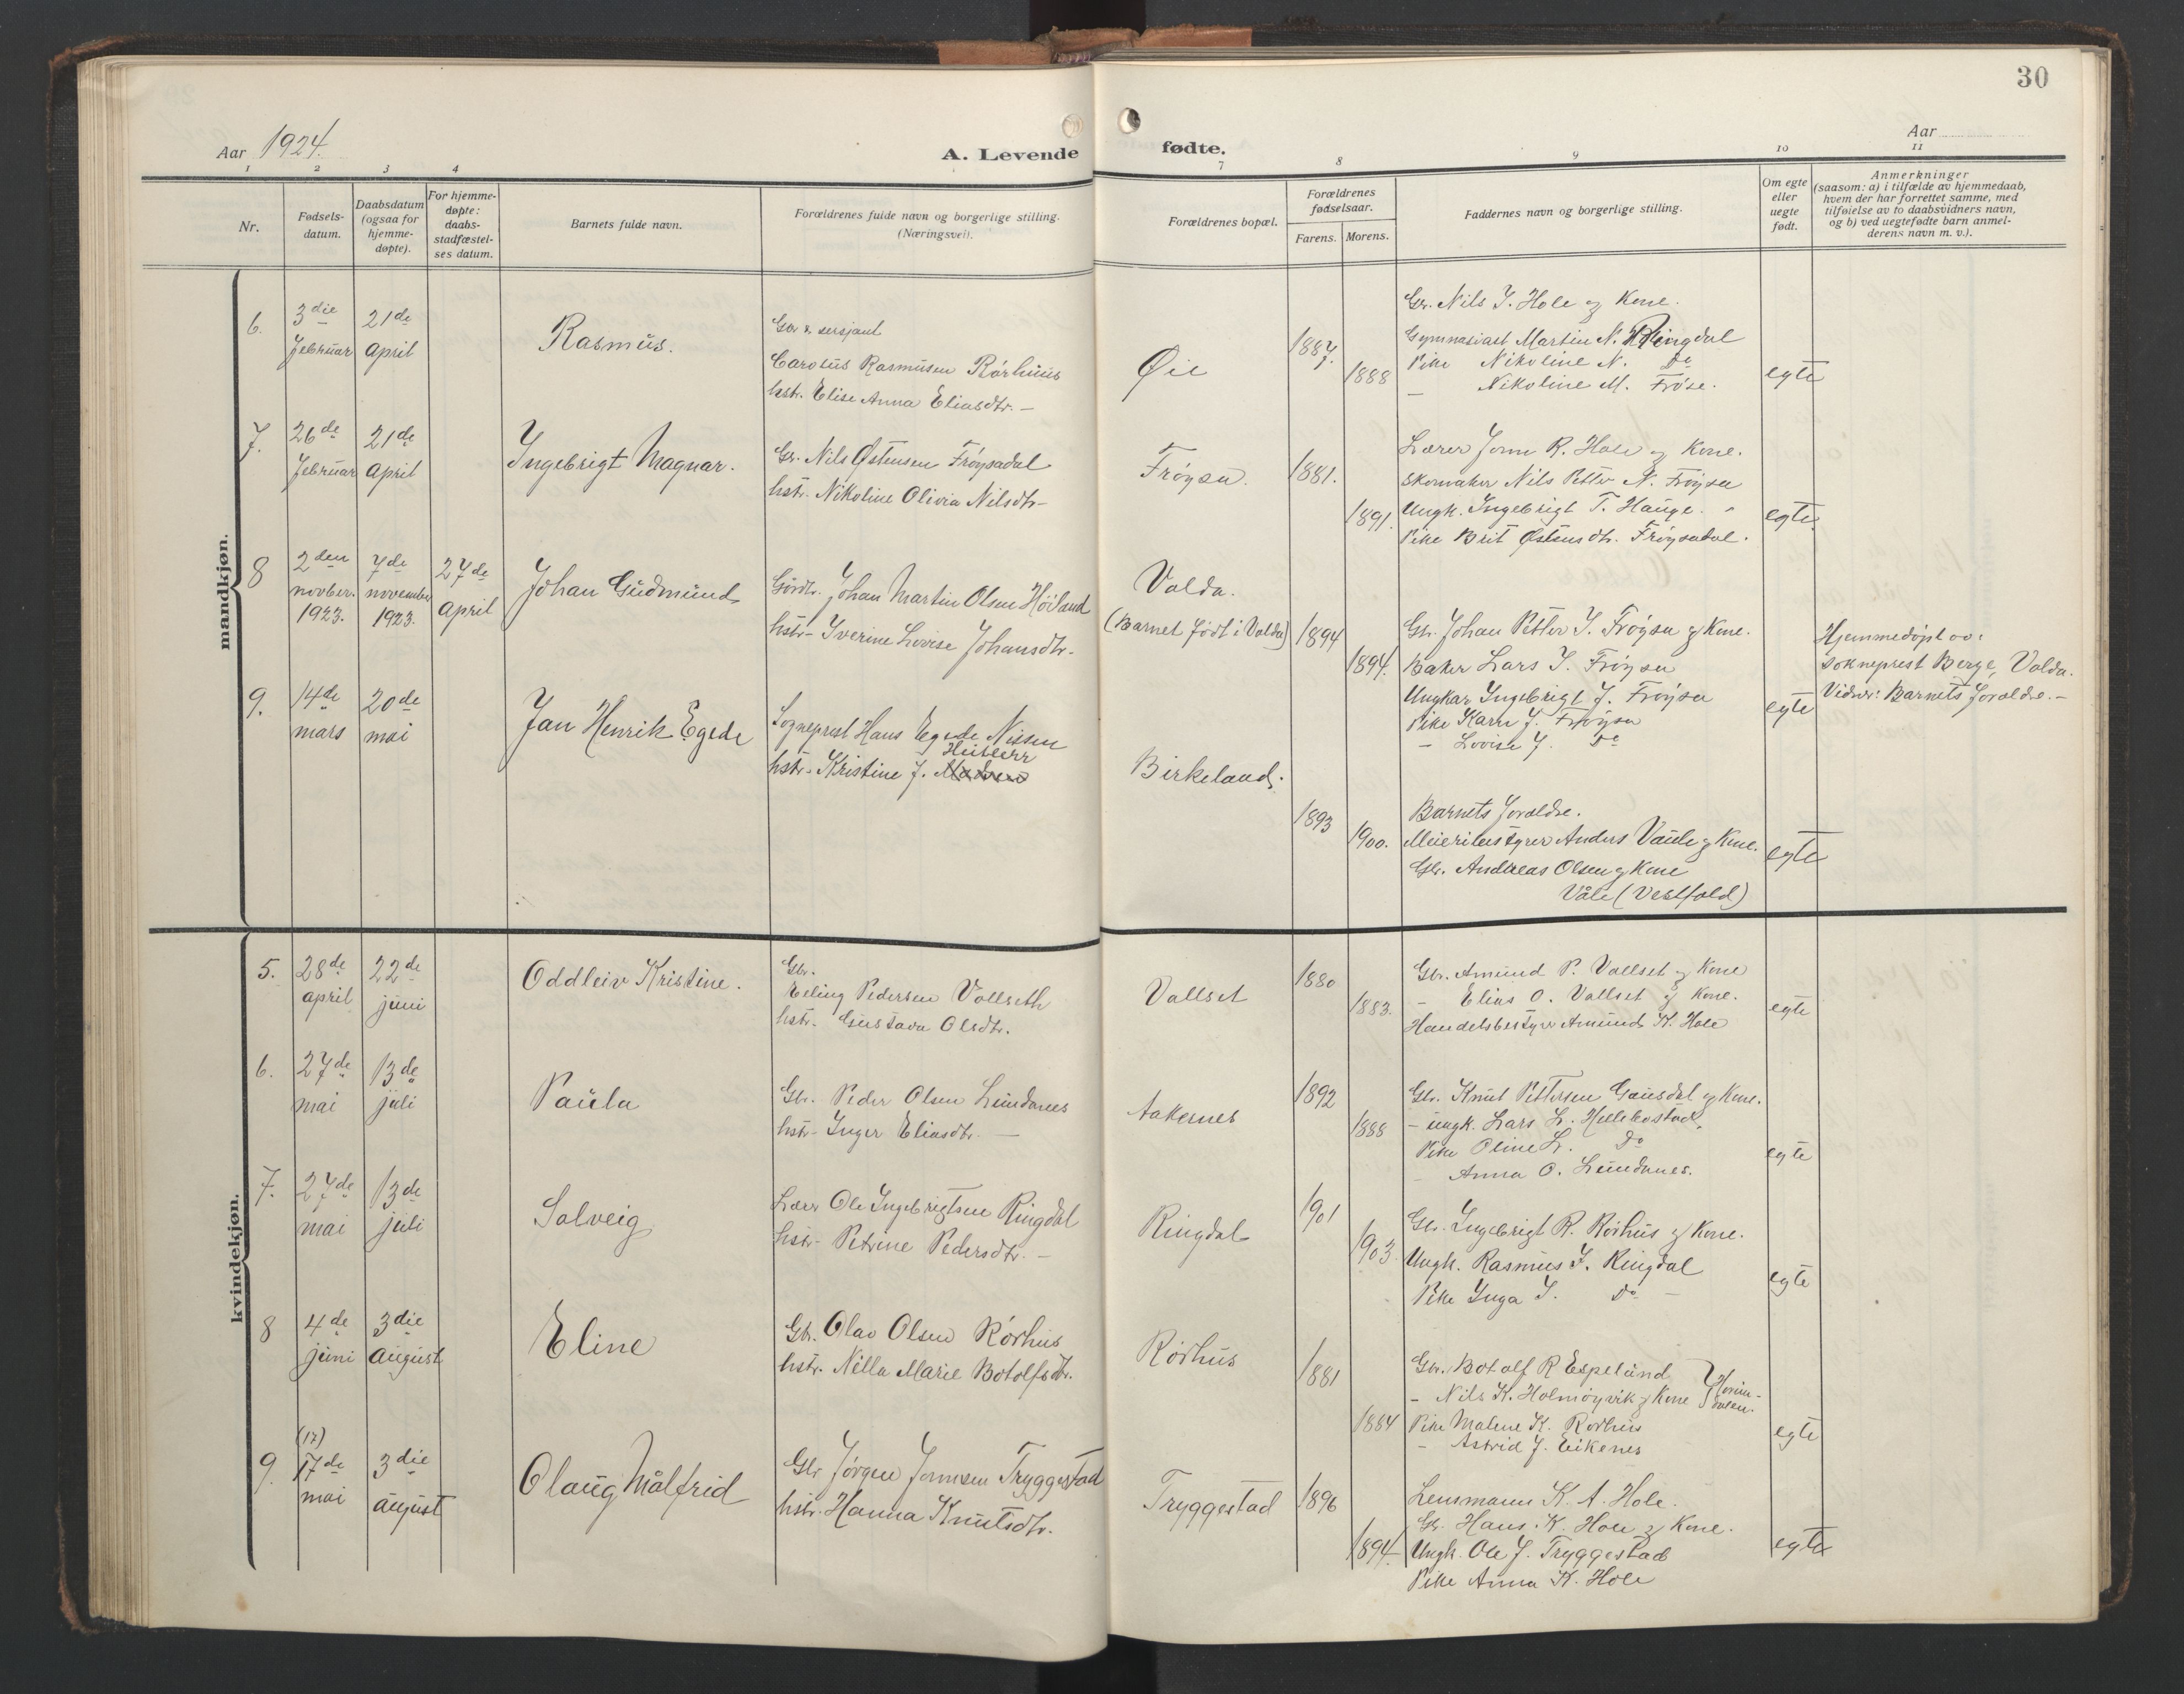 30
Aar 1924.
A. Levende
fødte.
Aar
1 2 3 4 7 8 9 10 11
Nr.
Fødsels-
datum.
Daabsdatum
(ogsaa for
hjemme-
døpte).
For hjemme-
døpte:
daabs-
stadfæstel-
ses datum.
Barnets fulde navn.
Forældrenes fulde navn og borgerlige stilling.
(Næringsvei).
Forældrenes bopæl.
Forældrenes
fødselsaar.
Farens. Morens.
Faddernes navn og borgerlige stilling.
Om egte
eller
uegte
født.
Anmerkninger
(saasom: a) i tilfælde av hjemmedaab,
hvem der har forrettet samme, med
tilføielse av to daabsvidners navn,
og b) ved uegtefødte barn anmel-
derens navn m. v.).
mandkjøn.
6.
3die
februar
21de
april
Rasmus.
Gbr & sersjant
Carolus Rasmusen Rørhuus
hstr. Elise Anna Eliasdtr. -
Øie
1887.
1888
Gbr. Nils J. Hole og Kone.
Gymnasiast Martin N. Ringdal
Pike Nikoline N. Do
- Nikoline M. Frøse.
egte
7.
26de
februar
21de
april
Ingebrigt Magnar.
Gbr. Nils Østensen Frøysadal
hstr. Nikoline Olivia Nilsdtr -
Frøysa.
1881.
1891.
Lærer Jonn R. Hole og Kone.
Skomaker Nils Petter N. Frøysa
Ungk. Ingebrigt T. Hauge. "
Pike Brit Østensdtr. Frøysadal.
egte
8
2den
novber.
1923.
7de
november
1923.
27de
april
Johan Gudmund
Gbrdr. Johan Martin Olsen Høiland
hstr- Iverine Lovise Johansdtr-
Volda.
(Barnet født i Volda)
1894
1894.
Gbr. Johan Petter I. Frøysa og Kone.
Baker Lars J. Frøysa
Ungkar Ingebrigt J. Frøysa
Pike Karen J. Frøysa
- Lovise J. Do
egte
Hjemmedøpt av:
sokneprest Berge, Volda.
Vidner: Barnets foraldre. -
9.
14de
mars
20de
mai
Jan Henrik Egede
Sogneprest Hans Egede Nissen
hstr- Kristine J.
Birkeland.
1893
1900.
Barnets foraldre.
Meieribestyrer Anders Vaule og Kone.
Gbr. Andreas Olsen og Kone
Våle (Vestfold)
egte
kvindekjøn.
5.
28de
april
22de
juni
Oddleiv Kristine.
Gbr.
Eeling Pedersen Vollseth
hstr. Gustava Olsdtr.
Vallset
1880
1883.
Gbr. Amund P. Vallset og Kone
- Elias O. Vallset og Kone.
Handelsbestyrer Amund K. Hole
egte
6.
27de
mai
13de
juli
Paula
Gbr. Peder Olsen Lundanes
hstr- Inger Eliasdtr. -
Aakernes
1892
1888
Gbr. Knut Pettersen Gausdal og Kone.
- ungk. Lars L. Hellebostad.
Pike Oline L. Do
- Anna O. Lundanes.
egte
7.
27de
mai
13de
juli
Solveig
Lærer Ole Ingebrigtsen Ringdal
hstr- Petrine Pedersdtr. -
Ringdal
1901
1903.
Gbr. Ingebrigt R. Rørhus og Kone.
Ungk. Rasmus I. Ringdal
Pike Inga I. Do -
egte
8
4de
juni
3die
august
Eline
Gbr. Olav Olsen Rørhus
hstr. Nilla Marie Botolfsdtr.
Rørhus
1881
1884
Gbr. Botolf R Espelund
- Nils K. Holmøyvik og Kone
Pike Malene K. Rørhus
- Astrid J. Eikenes
egte
9.
(17)
17de
mai
3die
august
Olaug Målfrid
Gbr Jørgen Jonnsen Tryggestad
hstr. Hanna Knutsdtr.
Tryggestad
1896
1894.
Lensmann K. A. Hole.
Gbr. Hans K. Hole og Kone.
Ungk. Ole J. Tryggestad
Pike Anna K. Hole
egte